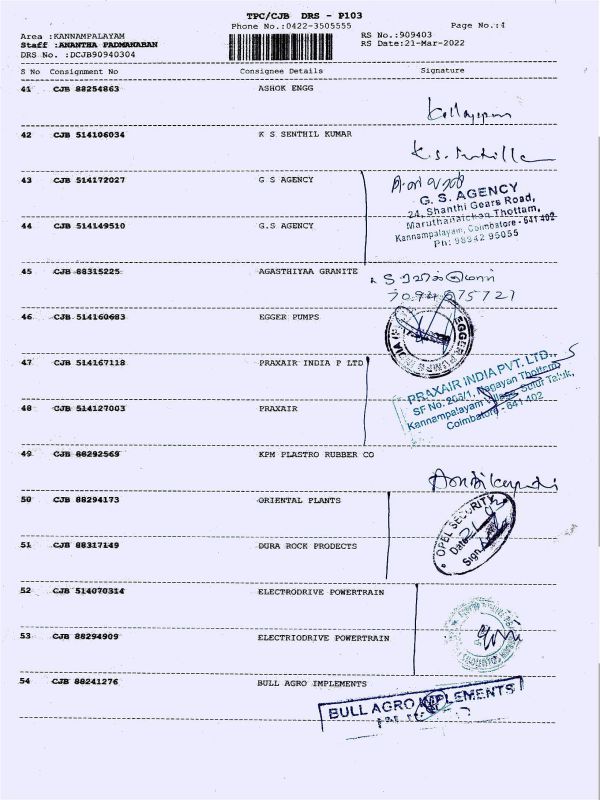 TPC/CJB DRS - P103
Phone No.:0422-3505555
Page No.:4
Area :KANNAMPALAYAM
RS No.:909403
Staff :ANANTHA PADMANABAN
RS Date:21-Mar-2022
DRS No. :DCJB90940304
S No Consignment No Consignee Details Signature
41 CJB 88254863 ASHOK ENGG
42 CJB 514106034 K S SENTHIL KUMAR
43 CJB 514172027 G.S AGENCY
G. S. AGENCY
24, Shanthi Gears Road,
Maruthanaichan Thottam,
44 CJB 514149510 G.S AGENCY
Kannampalayam, Coimbatore - 641 402
Ph: 98942 95055
45 CJB 88315225 AGASTHIYAA GRANITE
46 CJB 514160683 EGGER PUMPS
EGGER PUMPS
47 CJB 514167118 PRAXAIR INDIA P LTD
PRAXAIR INDIA PVT. LTD.,
SF No. 203/1, Nagayan Thottam
48 CJB 514127003 PRAXAIR
Kannampalayam Village, Sulur Taluk,
Coimbatore - 641 402
49 CJB 88292569 KPM PLASTRO RUBBER CO
50 CJB 88294173 ORIENTAL PLANTS
OPEL SECURITY
Date
Sign
51 CJB 88317149 DURA ROCK PRODECTS
52 CJB 514070314 ELECTRODRIVE POWERTRAIN
53 CJB 88294909 ELECTRIODRIVE POWERTRAIN
54 CJB 88241276 BULL AGRO IMPLEMENTS
BULL AGRO IMPLEMENTS